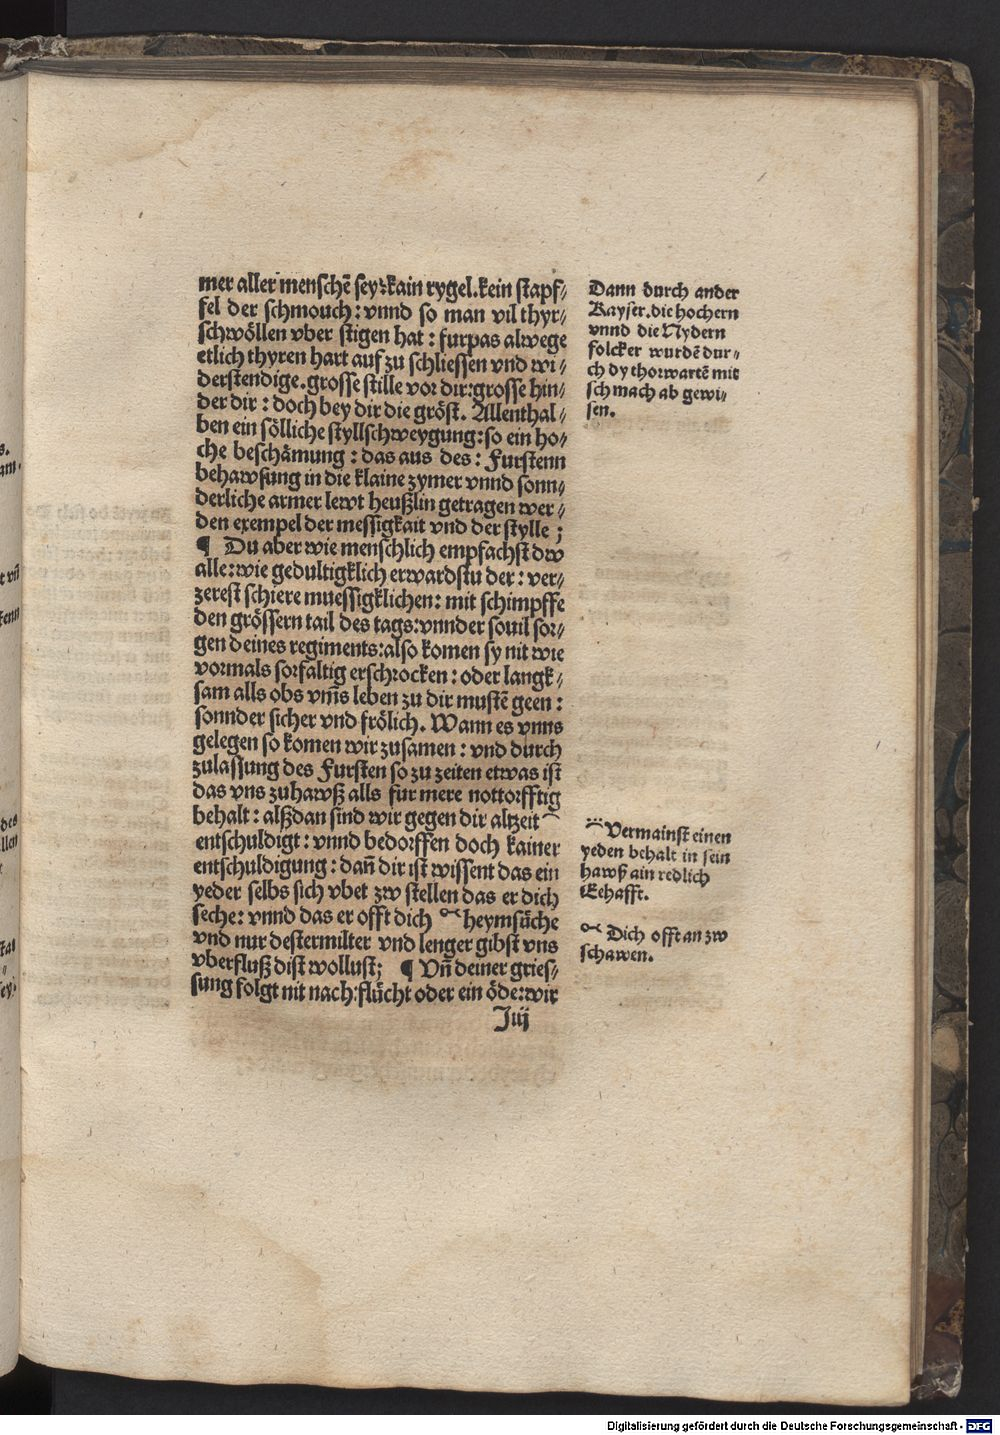 mer aller menschē sey: kain rygel. kein stapf⸗
fel der schmouch: vnnd so man vil thyr⸗
schwöllen vber stigen hat: furpas alwege
etlich thyren hart auf zu schliessen vnd wi⸗
derstendige. grosse stille vor dir: grosse hin⸗
der dir: doch bey dir die gröst. Allenthal⸗
ben ein sölliche styllschweygung: so ein ho⸗
che beschämung: das aus des: Furstenn
behawsung in die klaine zymer vnnd sonn⸗
derliche armer lewt heußlin getragen wer⸗
den exempel der messigkait vnd der stylle;
¶ Du aber wie menschlich empfachst dw
alle: wie gedultigklich erwardstu der: ver⸗
zerest schiere muessigklichen: mit schimpffe
den grössern tail des tags: vnnder souil sor⸗
gen deines regiments: also komen sy nit wie
vormals sorfaltig erschrocken: oder langk⸗
sam alls obs vm̄s leben zu dir mustē geen:
sonnder sicher vnd frölich. Wann es vnns
gelegen so komen wir zusamen: vnd durch
zulassung des Fursten so zu zeiten etwas ist
das vns zuhawß alls für mere nottorfftig
behalt: alßdan sind wir gegen dir altzeit
entschuldigt: vnnd bedorffen doch kainer
entschuldigung: dan̄ dir ist wissent das ein
yeder selbs sich vbet zw stellen das er dich
seche: vnnd das er offt dich heymsüche
vnd nur destermilter vnd lenger gibst vns
vberfluß dist wollust; ¶ Vn̄ deiner gries⸗
sung folgt nit nach: flücht oder ein öde: wir
Iiij
Dann durch ander
Kayser. die hochern
vnnd die Nydern
folcker wurdē dur⸗
ch dy thorwartē mit
schmach ab gewi⸗
sen.
Vermainst einen
yeden behalt in sein
hawß ain redlich
Eehafft.
Dich offt an zw
schawen.
Digitalisierung gefördert durch die Deutsche Forschungsgemeinschaft - DFG